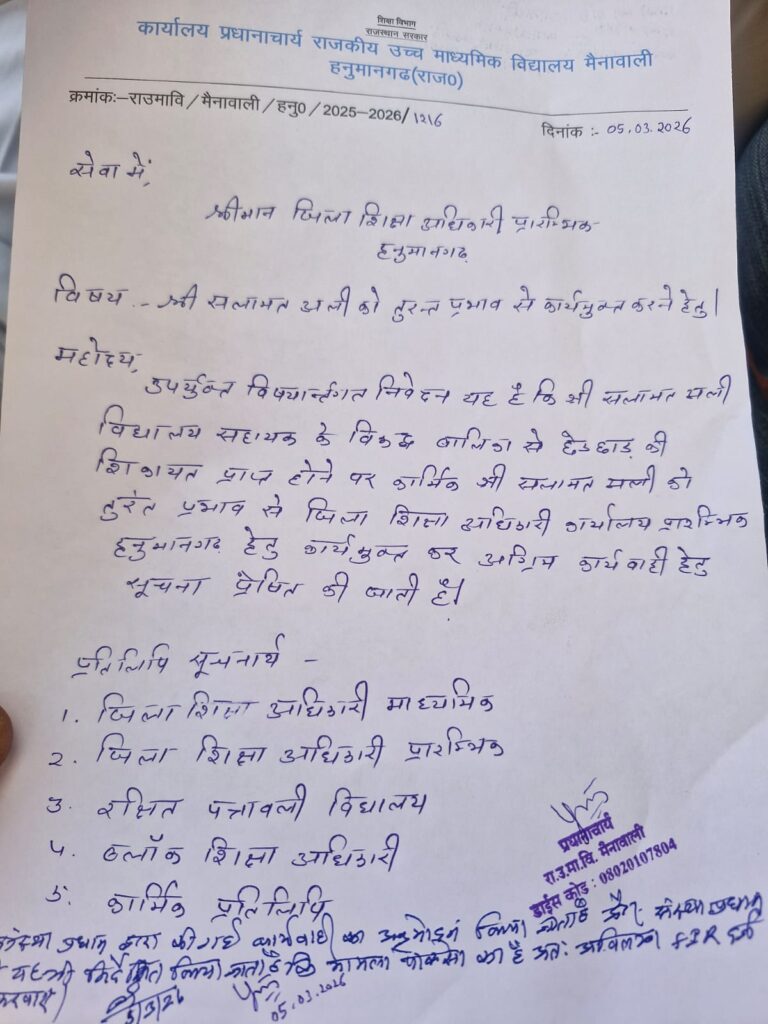 शिक्षा विभाग
राजस्थान सरकार
कार्यालय प्रधानाचार्य राजकीय उच्च माध्यमिक विद्यालय मैनावाली
हनुमानगढ(राज0)
क्रमांकः–राउमावि / मैनावाली / हनु0 / 2025–2026/1216
दिनांक :- 05.03.2026
सेवा में,
श्रीमान जिला शिक्षा अधिकारी प्रारम्भिक
हनुमानगढ़
विषय - श्री सलामत अली को तुरन्त प्रभाव से कार्यमुक्त करने हेतु।
महोदय,
उपर्युक्त विषयान्तर्गत निवेदन यह है कि श्री सलामत अली
विद्यालय सहायक के विरूद्ध बालिका से छेडछाड़ की
शिकायत प्राप्त होने पर कार्मिक श्री सलामत अली को
तुरंत प्रभाव से जिला शिक्षा अधिकारी कार्यालय प्रारम्भिक
हनुमानगढ़ हेतु कार्यमुक्त कर अग्रिम कार्यवाही हेतु
सूचना प्रेषित की जाती है।
प्रतिलिपि सूचनार्थ -
1. जिला शिक्षा अधिकारी माध्यमिक
2. जिला शिक्षा अधिकारी प्रारम्भिक
3. रक्षित पत्रावली विद्यालय
4. ब्लॉक शिक्षा अधिकारी
5. कार्मिक प्रतिलिपि
प्रधानाचार्य
रा.उ.मा.वि. मैनावाली
डाईस कोड : 08020107804
प्रधान द्वारा की गई कार्यवाही का अनुमोदन किया जाता है और संस्था प्रधान
यह भी निर्देशित किया जाता है कि मामला पोक्सो का है अतः अविलम्ब FIR दर्ज
करवाएं
5/3/26
05.03.2026